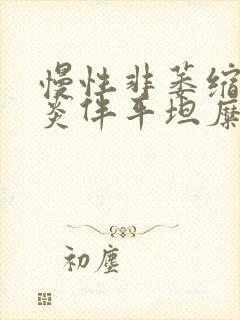 慢性非萎缩
炎伴平坦糜
初尘